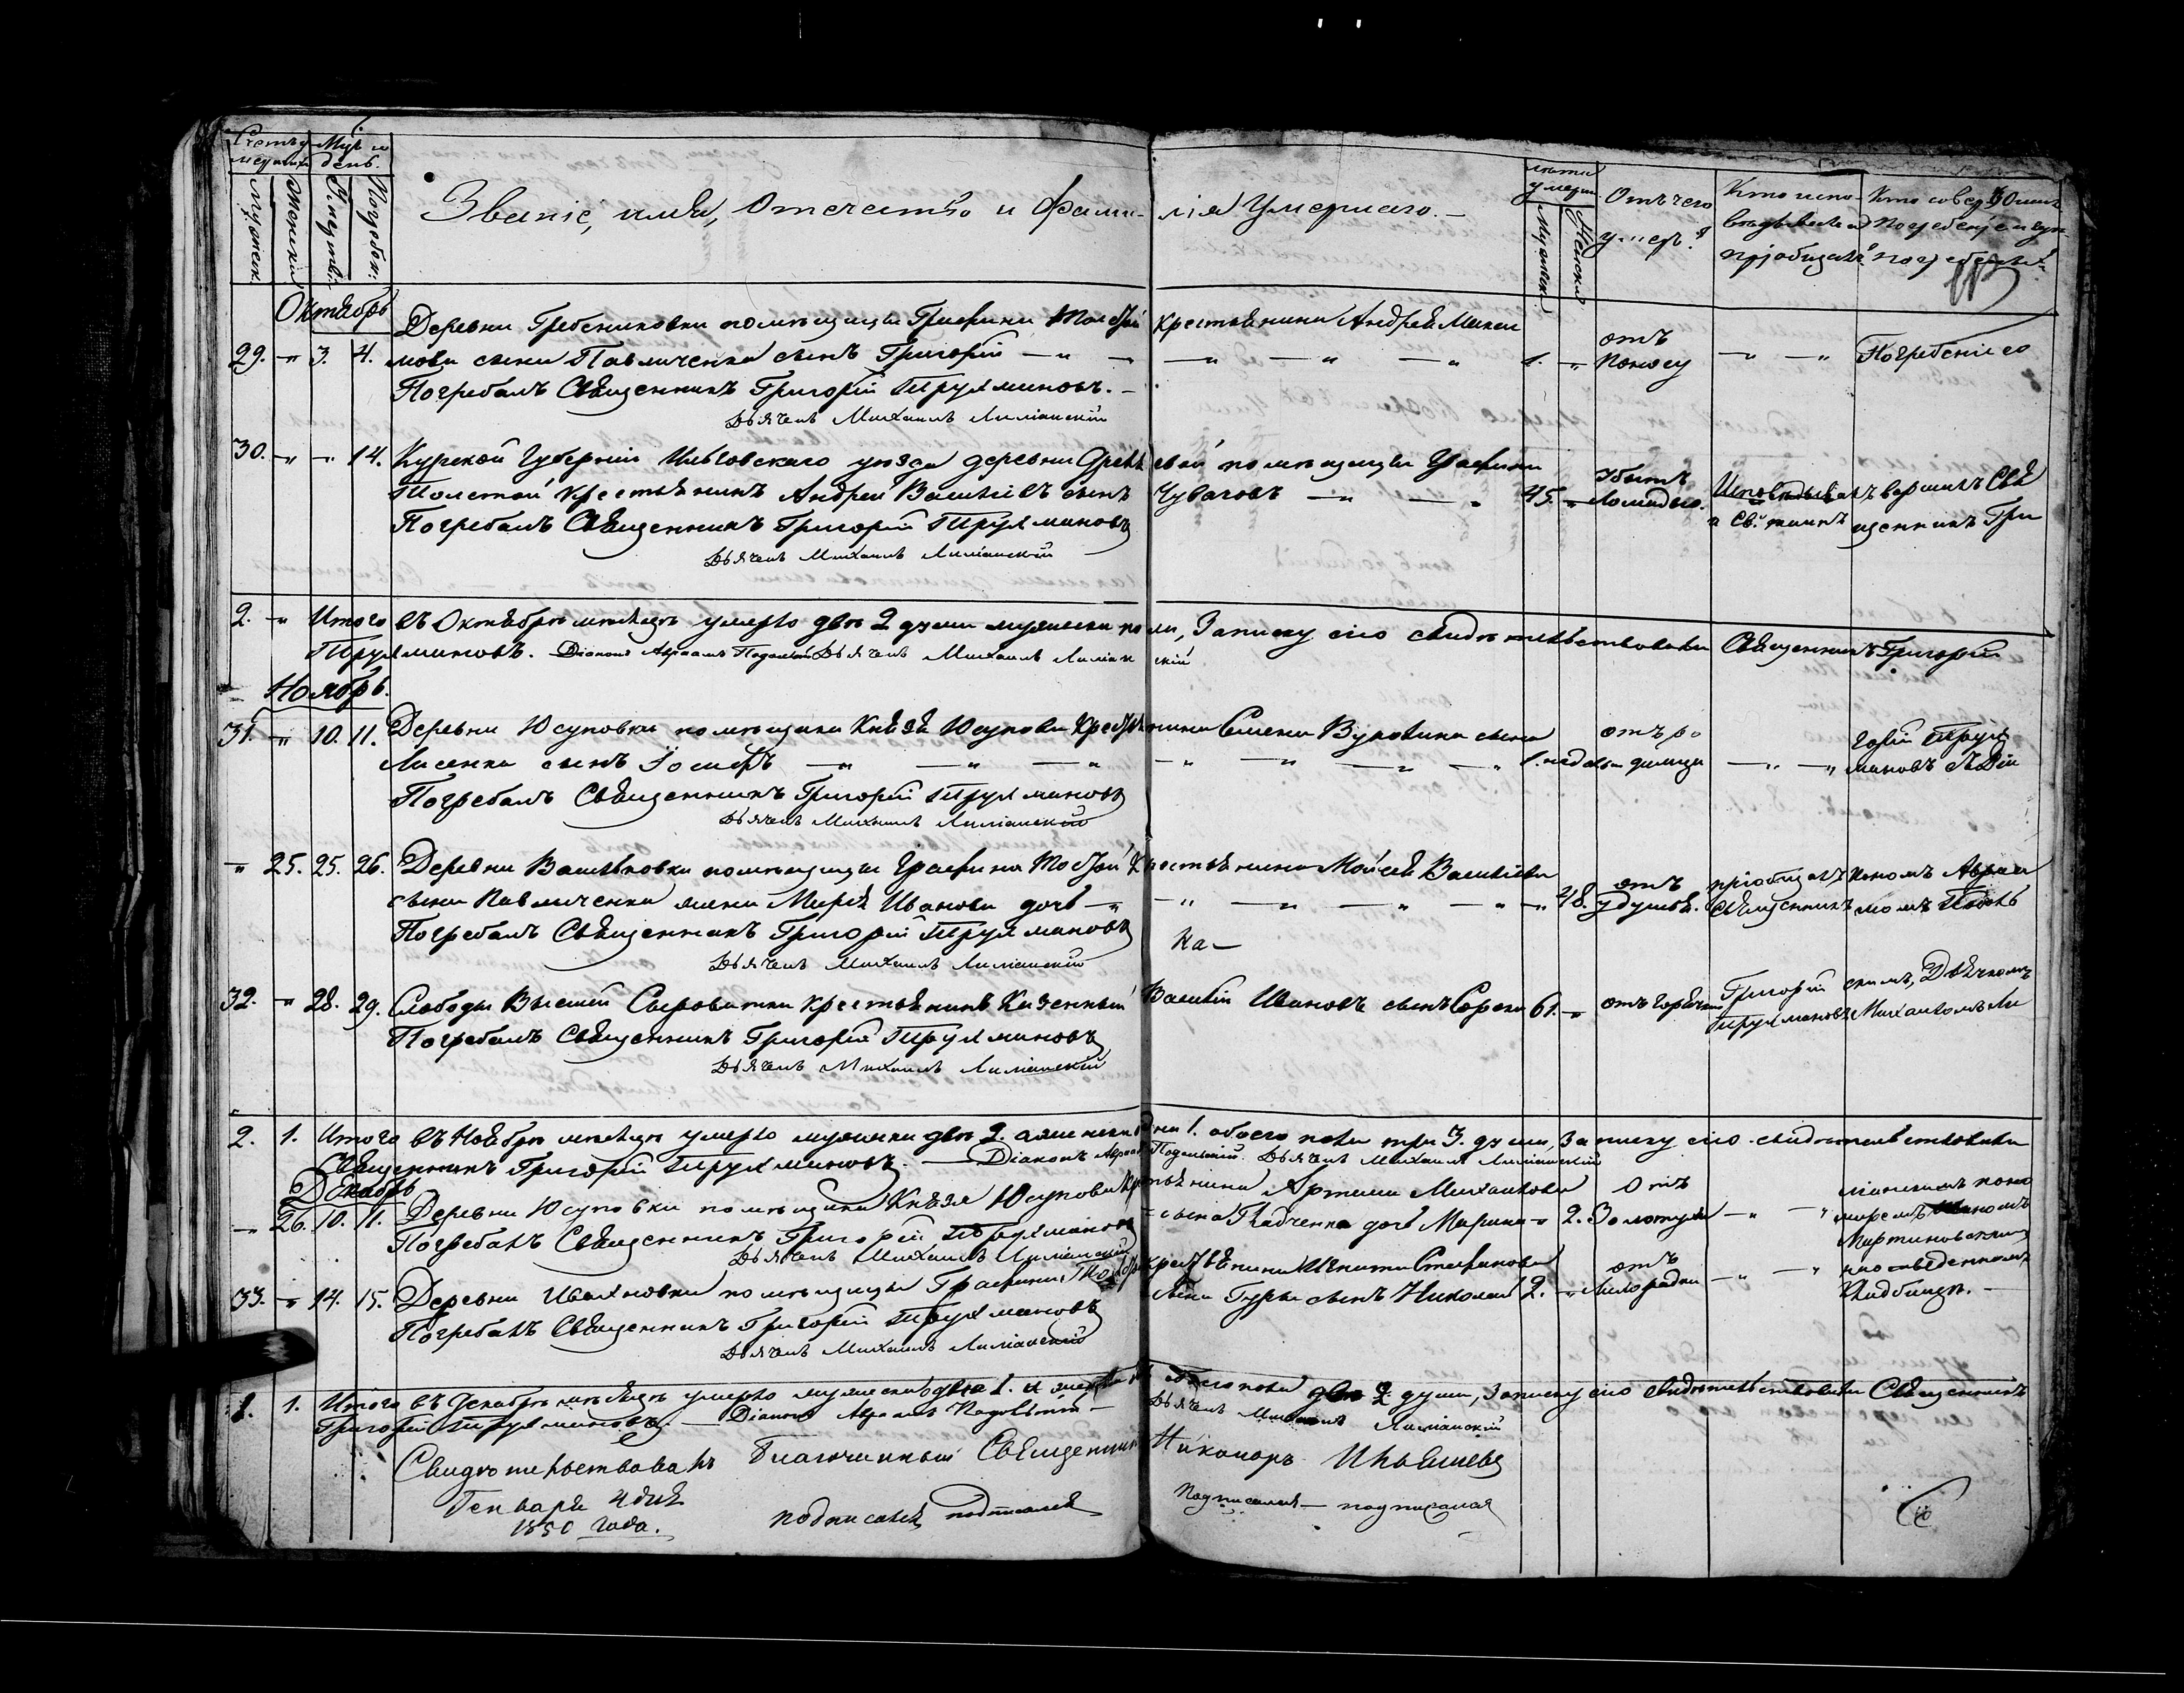 Счетъ умершихъ
Мѣс. и день.
Мужеск.
Женски
Погребен:
Званіе, имя, Отечество и Фамилія Умершаго. —
лѣта умерш.
Мужеск.
Женска
Отъ чего умеръ?
Кто исповѣдывалъ и пріобщалъ?
Кто совершалъ погребеніе и гдѣ погребены?
Октябрь
Деревни Гребениковки помѣщицы Графини Толстой крестьянина Андрея
29. — „ 3. 4. сына Павличенка сынъ Григорій — „ — „ — „ — „ 1. — „ отъ поносу — „ — „ Погребеніе со
Погребалъ Священникъ Григорій Трухмановъ. —
Дьячекъ Михаилъ Лиманскій
30. — „ — 14. Курской Губерніи уѣзда деревни помѣщицы Графини
Толстой крестьянинъ Андрей Васильевъ сынъ Чувачовъ — „ — „ 45. — „ Убитъ Лошадью. Исповѣдывалъ и Св. таинъ вершалъ Свя
Погребалъ Священникъ Григорій Трухмановъ щенникъ Гри
Дьячекъ Михаилъ Лиманскій
2. — „ Итого въ Октябрѣ мѣсяцѣ умерло двѣ 2 души мужеска пола, Записку сію свидѣтельствовали Священникъ Григорій
Трухмановъ. Діаконъ Авраамъ Подольскій Дьячекъ Михаилъ Лиманскій
Ноябрь.
31. — „ 10. 11. Деревни Юсуповки помѣщика Князя Юсупова Крестьянина Семена сына
Лисенка сынъ Іосифъ — „ — „ — „ — „ — „ — „ — „ 1. недѣли отъ родимца — „ — „ горій Трухмановъ съ Діа
Погребалъ Священникъ Григорій Трухмановъ
Дьячекъ Михаилъ Лиманскій
— „ 25. 25. 26. Деревни Васильковки помѣщицы Графини Толстой Крестьянина Моисея Васильева
сына Павличенка жена Марія Иванова дочь — „ — „ — „ — „ — „ — „ 48. отъ удушья. пріобщалъ Священникъ кономъ Авраамомъ Подоль
Погребалъ Священникъ Григорій Трухмановъ
Дьячекъ Михаилъ Лиманскій
ка —
32. — „ 28. 29. Слободы Высшей Сыроватки крестьянинъ Казенный Василій Ивановъ сынъ Сорока 61. — „ отъ горячки Григорій Трухмановъ скимъ, Дьячкомъ Михаиломъ Ли
Погребалъ Священникъ Григорій Трухмановъ
Дьячекъ Михаилъ Лиманскій
2. 1. Итого въ Ноябрѣ мѣсяцѣ умерло мужеска двѣ 2. а женска одна 1. обоего пола три 3. души, Записку сію свидѣтельствовали
Священникъ Григорій Трухмановъ. — Діаконъ Авраамъ Подольскій. Дьячекъ Михаилъ Лиманскій
Декабрь
— „ 26. 10. 11. Деревни Юсуповки помѣщика Князя Юсупова Крестьянина Артема Михайлова
сына Ткаченка дочь Марина — „ 2. Отъ Золотухи — „ — „ манскимъ пономаремъ Иваномъ Мартиновскимъ
Погребалъ Священникъ Григорій Трухмановъ
Дьячекъ Михаилъ Лиманскій
33. — „ 14. 15. Деревни Ивахновки помѣщицы Графини Толстой крестьянина Игната Стефанова
сына Гуры сынъ Николай 2. — „ отъ Лихорадки — „ — „ на отведенномъ Кладбищѣ. —
Погребалъ Священникъ Григорій Трухмановъ
Дьячекъ Михаилъ Лиманскій
1. 1. Итого въ Декабрѣ мѣсяцѣ умерло мужеска одна 1. и женска обоего пола двѣ 2 души, Записку сію свидѣтельствовали Священникъ
Григорій Трухмановъ. — Діаконъ Авраамъ Подольскій — Дьячекъ Михаилъ Лиманскій
Свидѣтельствовалъ Благочинный Священникъ Никаноръ
Генваря 4 дня
1850 года.
подписался подписался подписался — подписался